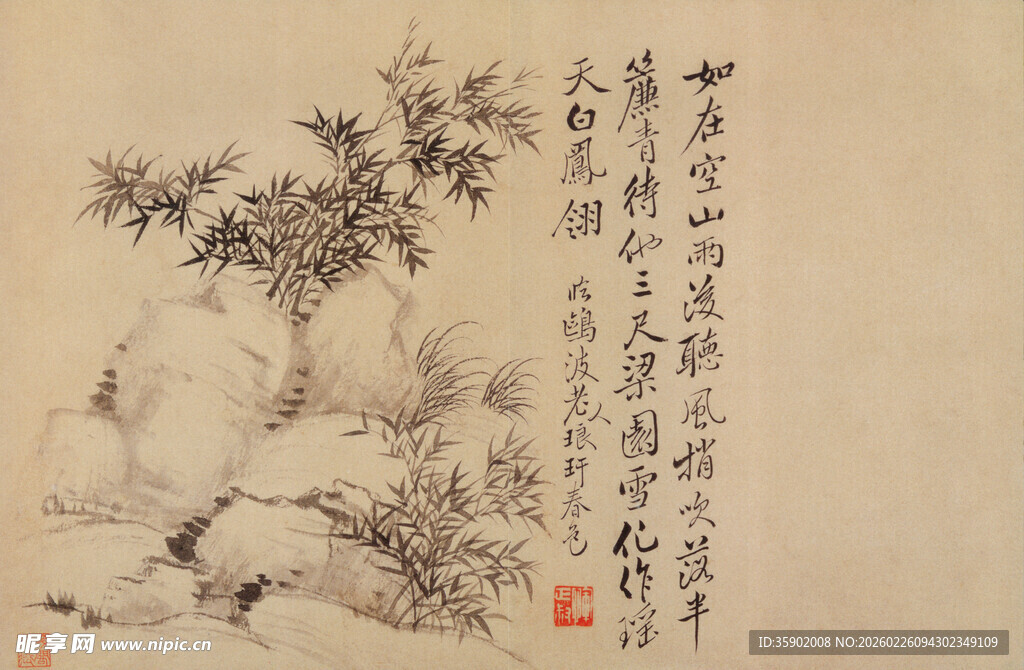 如在空山雨後聽風梢吹落半
簾青待他三尺梁園雪化作瑶
天白鳳翎
临鷗波老人琅玕春色
正叔
昵享网 www.nipic.cn
ID:35902008 NO:20260226094302349109